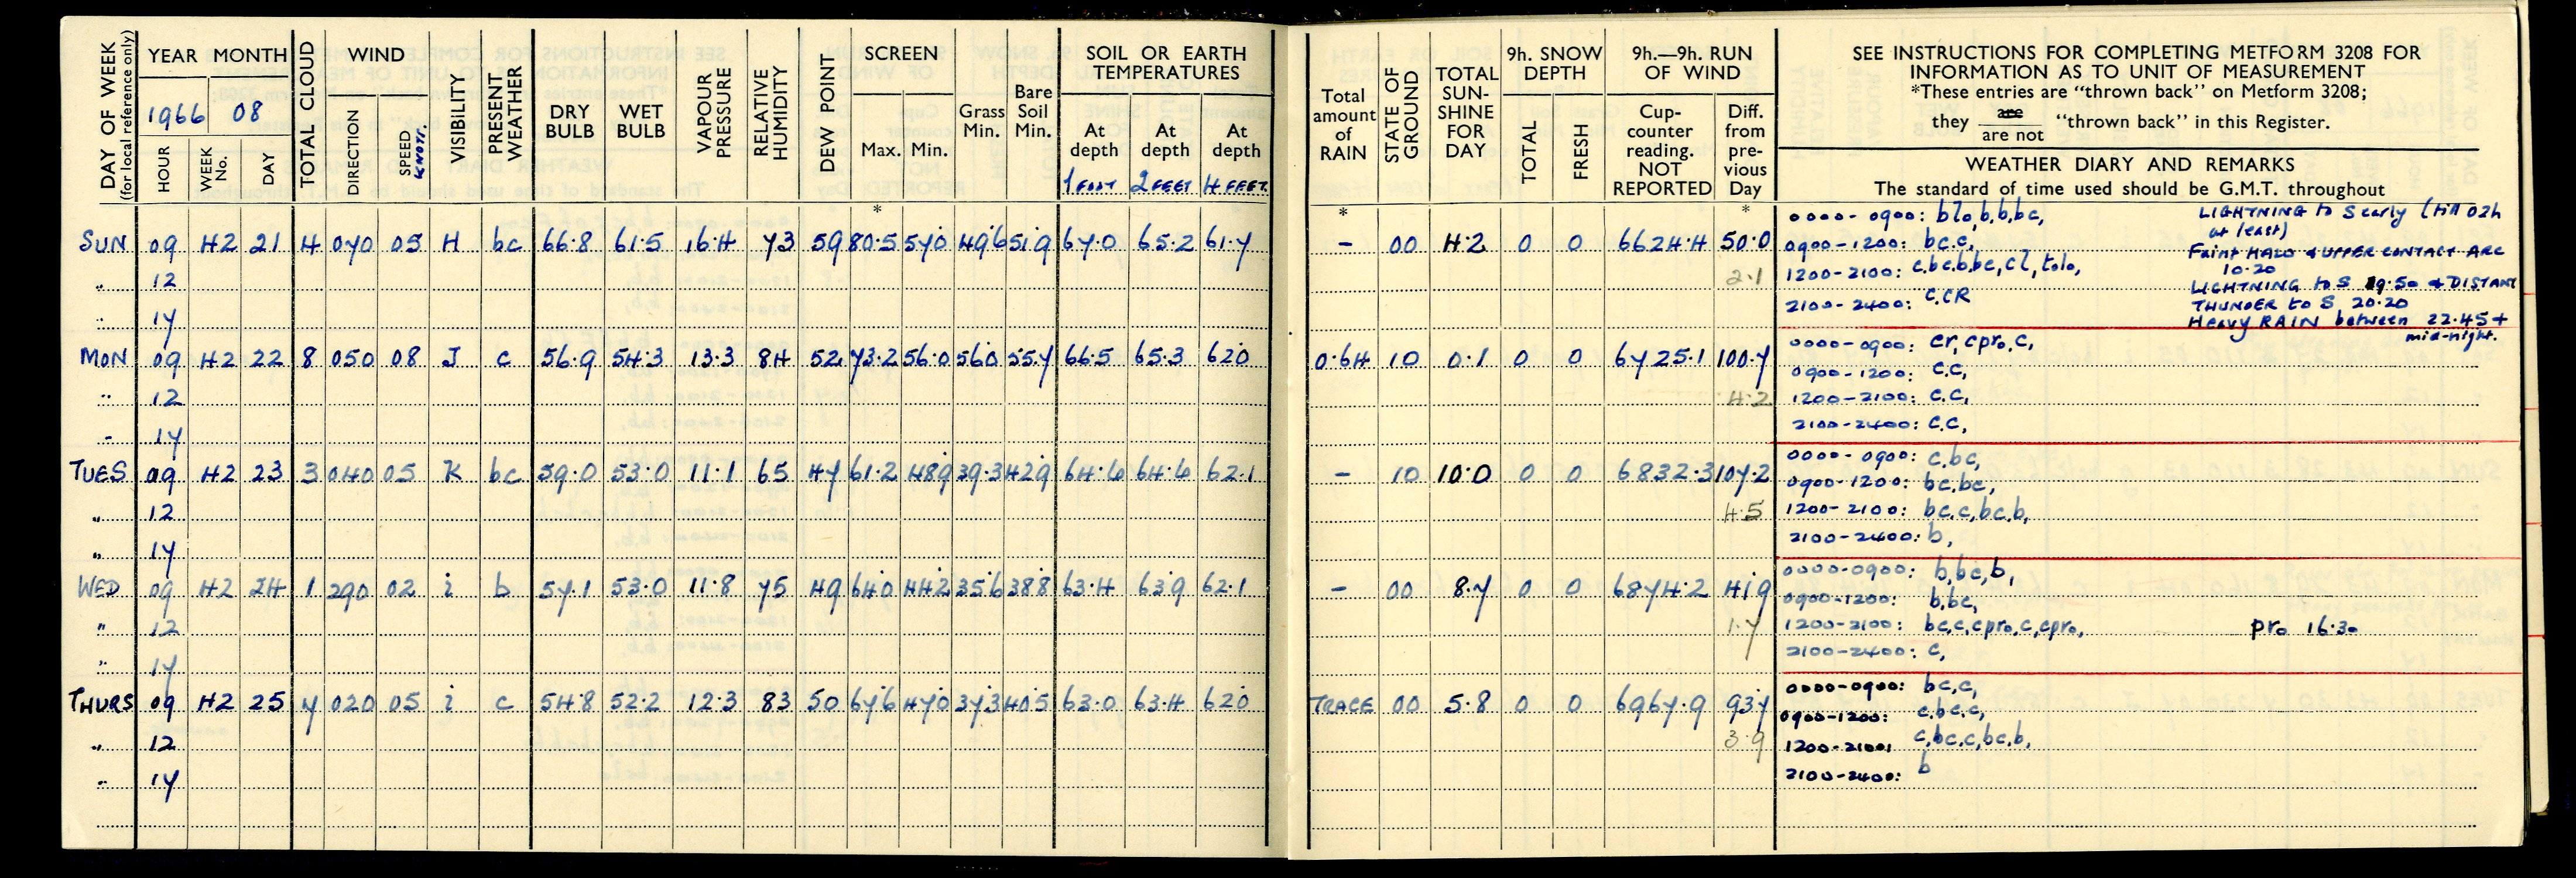 DAY OF WEEK
(for local reference only)
YEAR MONTH
1966 08
HOUR
WEEK No.
DAY
TOTAL CLOUD
WIND
DIRECTION
SPEED
KNOTS.
VISIBILITY
PRESENT WEATHER
DRY BULB
WET BULB
VAPOUR PRESSURE
RELATIVE HUMIDITY
DEW POINT
SCREEN
Max. Min.
*
Grass Min.
Bare Soil Min.
SOIL OR EARTH TEMPERATURES
At depth At depth At depth
1 FOOT 2 FEET 4 FEET
Total amount of RAIN
*
STATE OF GROUND
TOTAL SUN-SHINE FOR DAY
9h. SNOW DEPTH
TOTAL
FRESH
9h.—9h. RUN OF WIND
Cup-counter reading. NOT REPORTED
Diff. from pre-vious Day
*
SEE INSTRUCTIONS FOR COMPLETING METFORM 3208 FOR
INFORMATION AS TO UNIT OF MEASUREMENT
*These entries are "thrown back" on Metform 3208;
they are / are not "thrown back" in this Register.
WEATHER DIARY AND REMARKS
The standard of time used should be G.M.T. throughout
SUN 09 42 21 4 070 05 H bc 66.8 61.5 16.4 73 59 80.5 57.0 49.6 51.9 67.0 65.2 61.7 - 00 4.2 0 0 6624.4 50.0
0000-0900: blo,b,b,bc,
LIGHTNING to S early (till 02h at least)
0900-1200: bc.c,
Faint HALO & UPPER CONTACT ARC 10.20
" 12 2.1
1200-2100: c.bc.b.bc, cl, tolo,
LIGHTNING to S 19.50 & DISTANT THUNDER to S 20.20
" 17
2100-2400: c.CR
Heavy RAIN between 22.45 + mid-night.
MON 09 42 22 8 050 08 J c 56.9 54.3 13.3 84 52 73.2 56.0 56.0 55.7 66.5 65.3 62.0 0.64 10 0.1 0 0 6725.1 100.7
0000-0900: cr, cpro, c,
0900-1200: c.c,
" 12 4.2
1200-2100: c.c,
" 17
2100-2400: c.c,
TUES 09 42 23 3 040 05 K bc 59.0 53.0 11.1 65 47 61.2 48.9 39.3 42.9 64.6 64.6 62.1 - 10 10.0 0 0 6832.3 107.2
0000-0900: c.bc,
0900-1200: bc.bc,
" 12 4.5
1200-2100: bc.c,bc.b,
" 17
2100-2400: b,
WED 09 42 24 1 290 02 i b 57.1 53.0 11.8 75 49 64.0 44.2 35.6 38.8 63.4 63.9 62.1 - 00 8.7 0 0 6874.2 41.9
0000-0900: b,bc,b,
0900-1200: b,bc,
" 12 1.7
1200-2100: bc,c,cpro,c,cpro, pro 16.30
" 17
2100-2400: c,
THURS 09 42 25 7 020 05 i c 54.8 52.2 12.3 83 50 67.6 47.0 37.3 40.5 63.0 63.4 62.0 TRACE 00 5.8 0 0 6967.9 93.7
0000-0900: bc,c,
0900-1200: c.bc.c,
" 12 3.9
1200-2100: c,bc.c,bc,b,
" 17
2100-2400: b